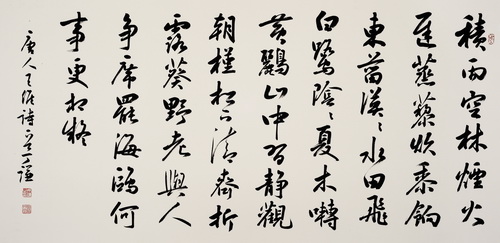 積雨空林煙火
遲蒸藜炊黍餉
東菑漠〻水田飛
白鷺陰〻夏木囀
黃鸝山中習靜觀
朝槿松下清齋折
露葵野老與人
爭席罷海鷗何
事更相疑
唐人王維詩丁謙